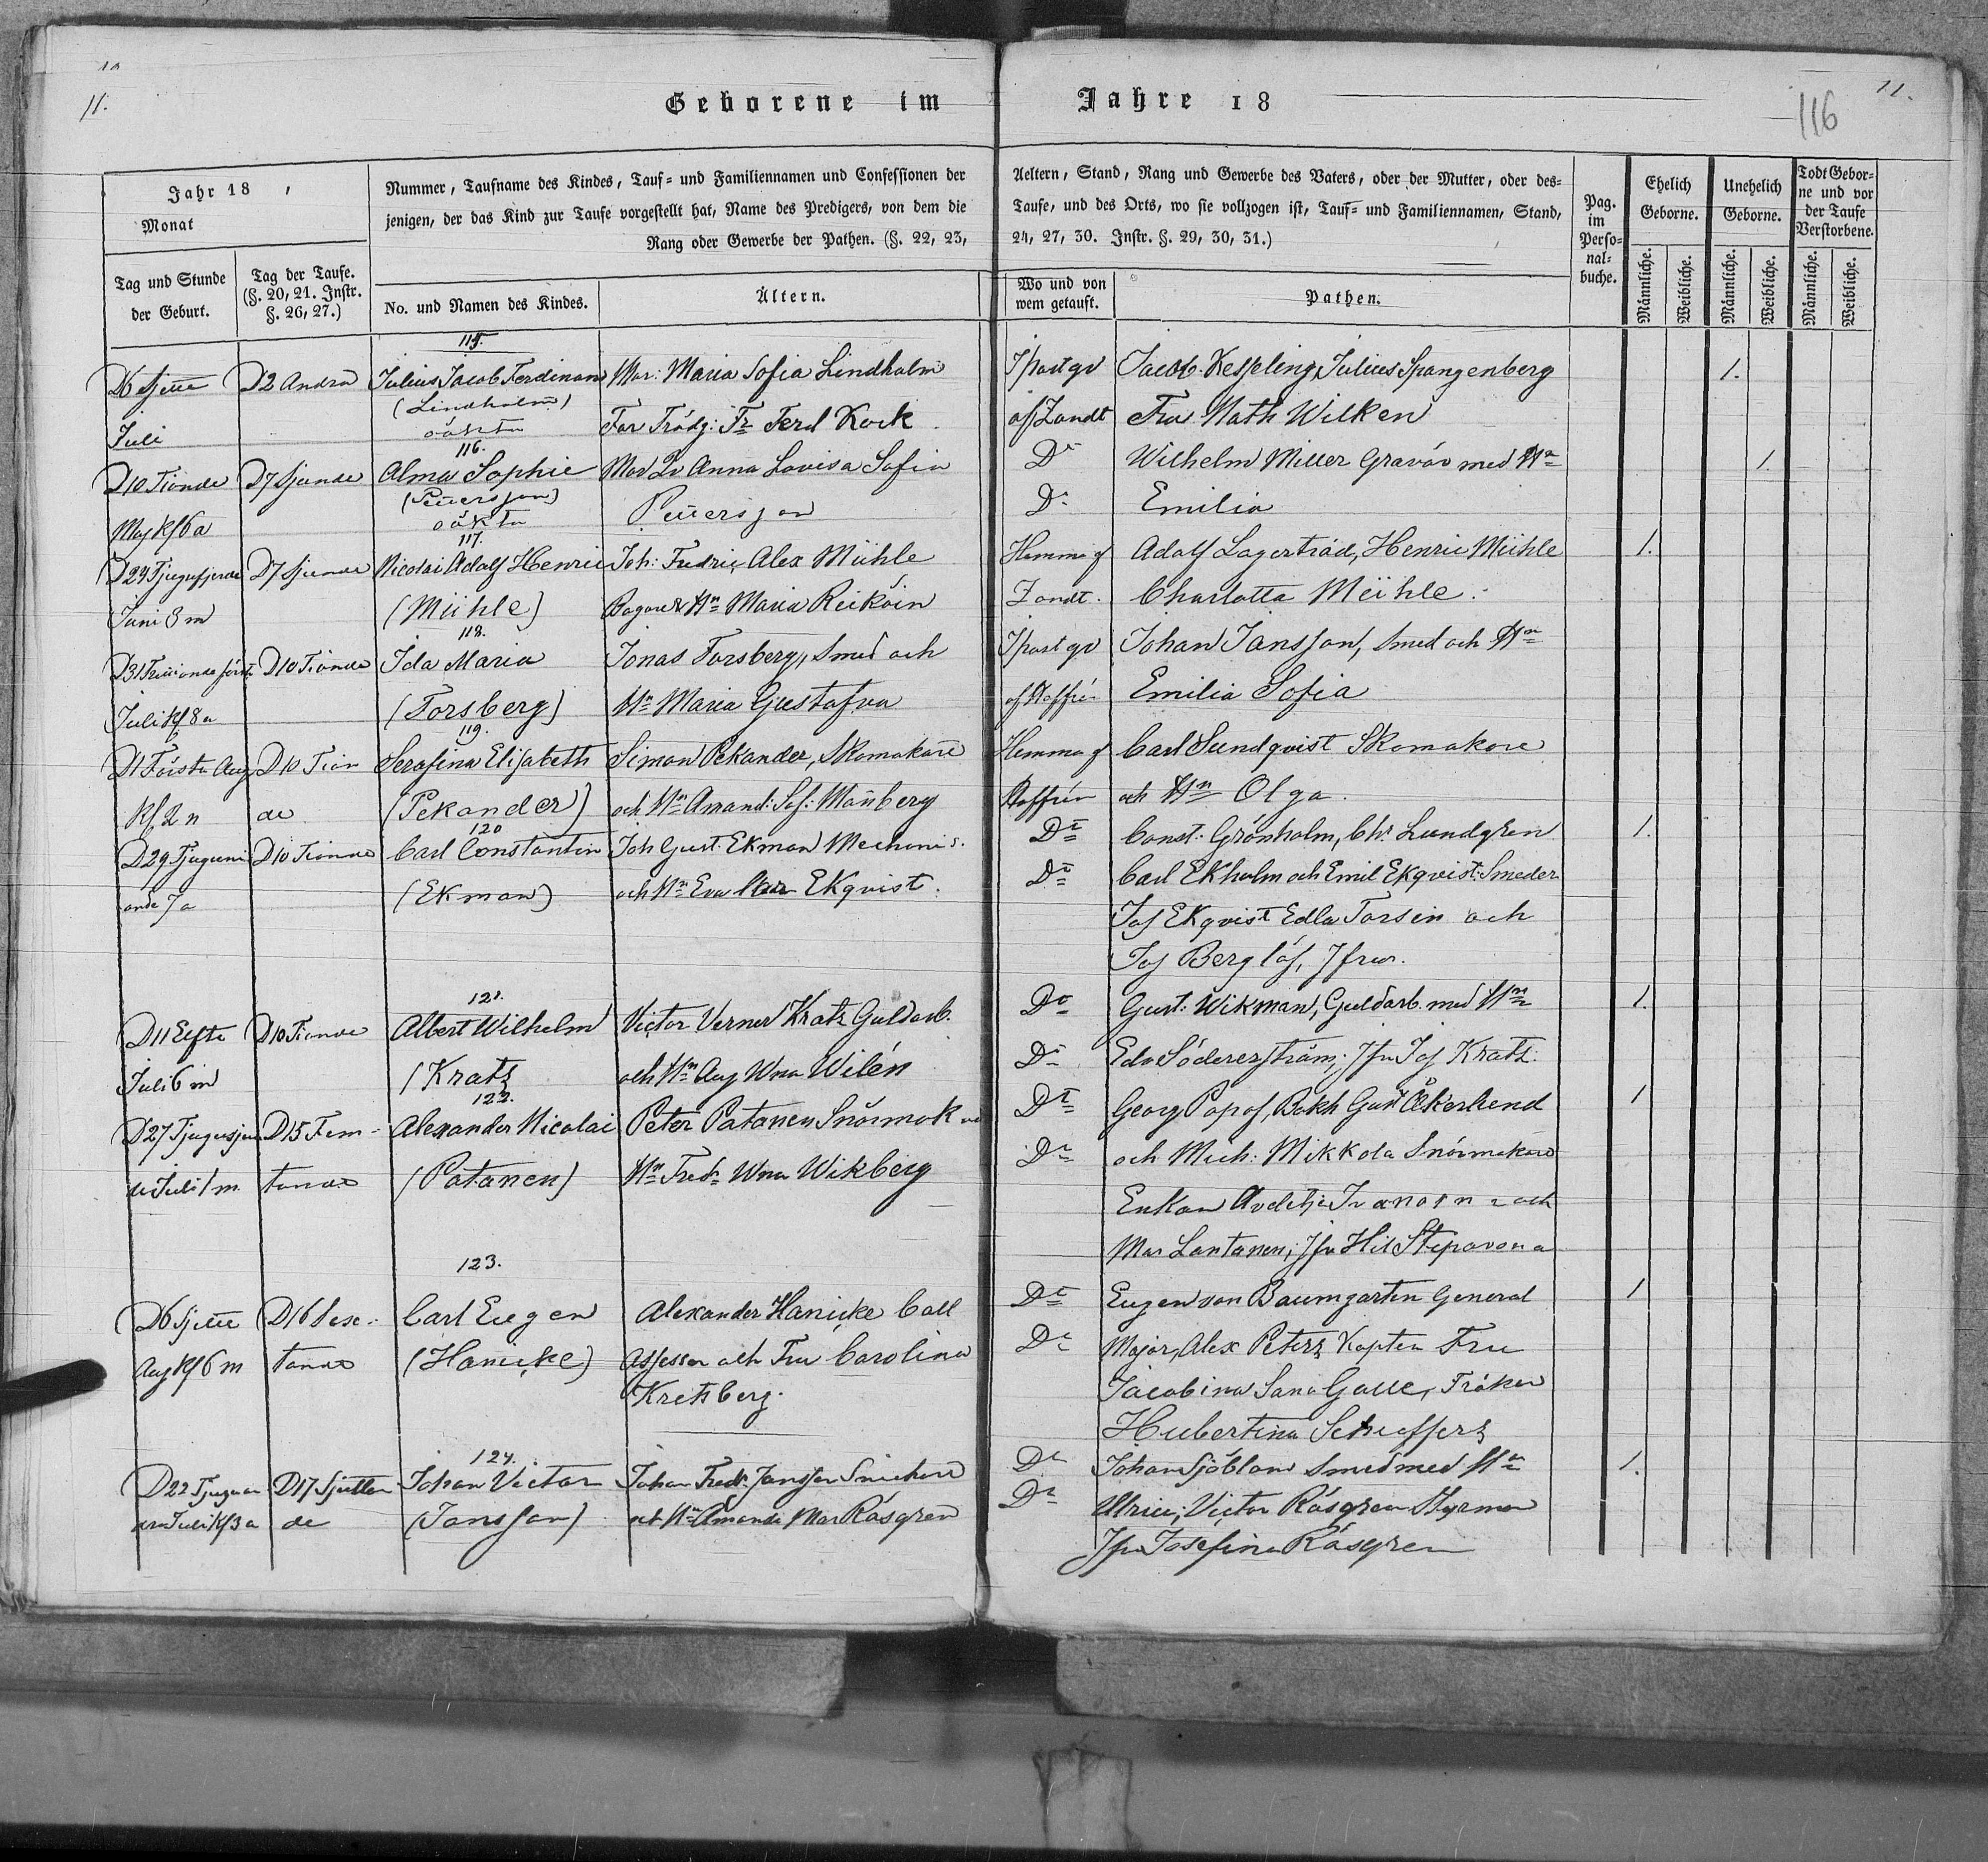 11.
Geborene im Jahre 18
11.
116
Jahr 18
Monat
Nummer, Taufname des Kindes, Tauf- und Familiennamen und Confessionen der
jenigen, der das Kind zur Taufe vorgestellt hat, Name des Predigers, von dem die
Rang oder Gewerbe der Pathen. (§. 22, 23,
Aeltern, Stand, Rang und Gewerbe des Vaters, oder der Mutter, oder des-
Taufe, und des Orts, wo sie vollzogen ist, Tauf- und Familiennamen, Stand,
24, 27, 30. Instr. §. 29, 30, 31.)
Pag. im Perso-nal-buche.
Ehelich Geborne.
Unehelich Geborne.
Todt Gebor-ne und vor der Taufe Verstorbene.
Tag und Stunde der Geburt.
Tag der Taufe. (§. 20, 21. Instr. §. 26, 27.)
No. und Namen des Kindes.
Ältern.
Wo und von wem getauft.
Pathen.
Männliche. Weibliche. Männliche. Weibliche. Männliche. Weibliche.
115.
D6 sjette D2 Andra Julius Jacob Ferdinand Mor: Maria Sofia Lindholm I pastgd Jacob Kesseling, Julius Spangenberg 1.
(Lindholm)
Juli oäkta Far Trädg: Fr Ferd Kock af Zandt Fru Math Wilken
116.
D10 Tionde D7 Sjunde Alma Sophie Mod Anna Lovisa Sofia Do Wilhelm Miller Gravör med Hu 1.
(Pettersson)
Maj Kl 6 a oäkta Pettersson Do Emilia
117.
D24 Tjugufjerde D7 Sjunde Nicolai Adolf Henric Joh: Fredric Alex Mühle Hemma af Adolf Lagerträd, Henric Mühle 1.
Juni 8 m (Mühle) Bagare Hu Maria Zandt. Charlotta Mühle.
118.
D31 Trettionde första D10 Tionde Ida Maria Jonas Forsberg, Smed och I pastgd Johan Jansson, Smed och Hu
Juli Kl 8 a (Forsberg) Hu Maria Gustafva af Emilia Sofia
119.
D1 Första Aug D10 Tion Serafina Elisabeth Simon Pekander, Skomakare Hemma af Carl Sundqvist Skomakare
Kl 2 n de (Pekander) och Hu Amand: Sof: Manberg och Hu Olga.
120
D29 Tjuguni D10 Tionde Carl Constantin Joh Gust. Ekman Mechanis. Do Const. Grönholm, Ch: Lundgren 1.
ande 7 a (Ekman) och Hu Eva Ekqvist. Do Carl Ekholm och Emil Ekqvist: Smeder
Jos Ekqvist Edla Torsin och
Jos Berglöf, Jfrur.
121.
D11 Elfte D10 Tionde Albert Wilhelm Victor Verner Kratz Guldarb. Do Gust: Wikman, Guldarb. med Hu 1.
Juli 6 m (Kratz och Hu Aug Wma Wilén Do Edv Söderström; Jfr Jos Kratz.
122.
D27 Tjugusjun D15 Fem- Alexander Nicolai Peter Patanen Snörmak Do Georg Popof, Bokh Gust Åkerlund 1
de Juli 1 m tonde (Patanen) Hu Fred: Wma Wikberg Do och Mich: Mikkola Snörmakare
Enkan Avdotja Ivanovna och
Mar Lantanen; Jfr Hil Stepavona
123.
D6 Sjette D16 Sex- Carl Eugen Alexander Hanicke Coll Do Eugen von Baumgarten General 1
Aug Kl 6 m tonde (Hanicke) Assessor och Fru Carolina Do Major, Alex Peterz Kapten Fru
Kretsberg. Jacobina Sana Galle, Fröken
Hubertina Scheffers
124.
D22 Tjuguan D17 Sjutton Johan Victor Johan Fredr Jansson Snickare Do Johan Sjöblom Smed med Hu 1.
dra Juli Kl 3 a de (Jansson) och Hu Amanda Mar Räsgren Do Ulrica; Victor Räsgren Styrman
Jfr Josefina Räsgren